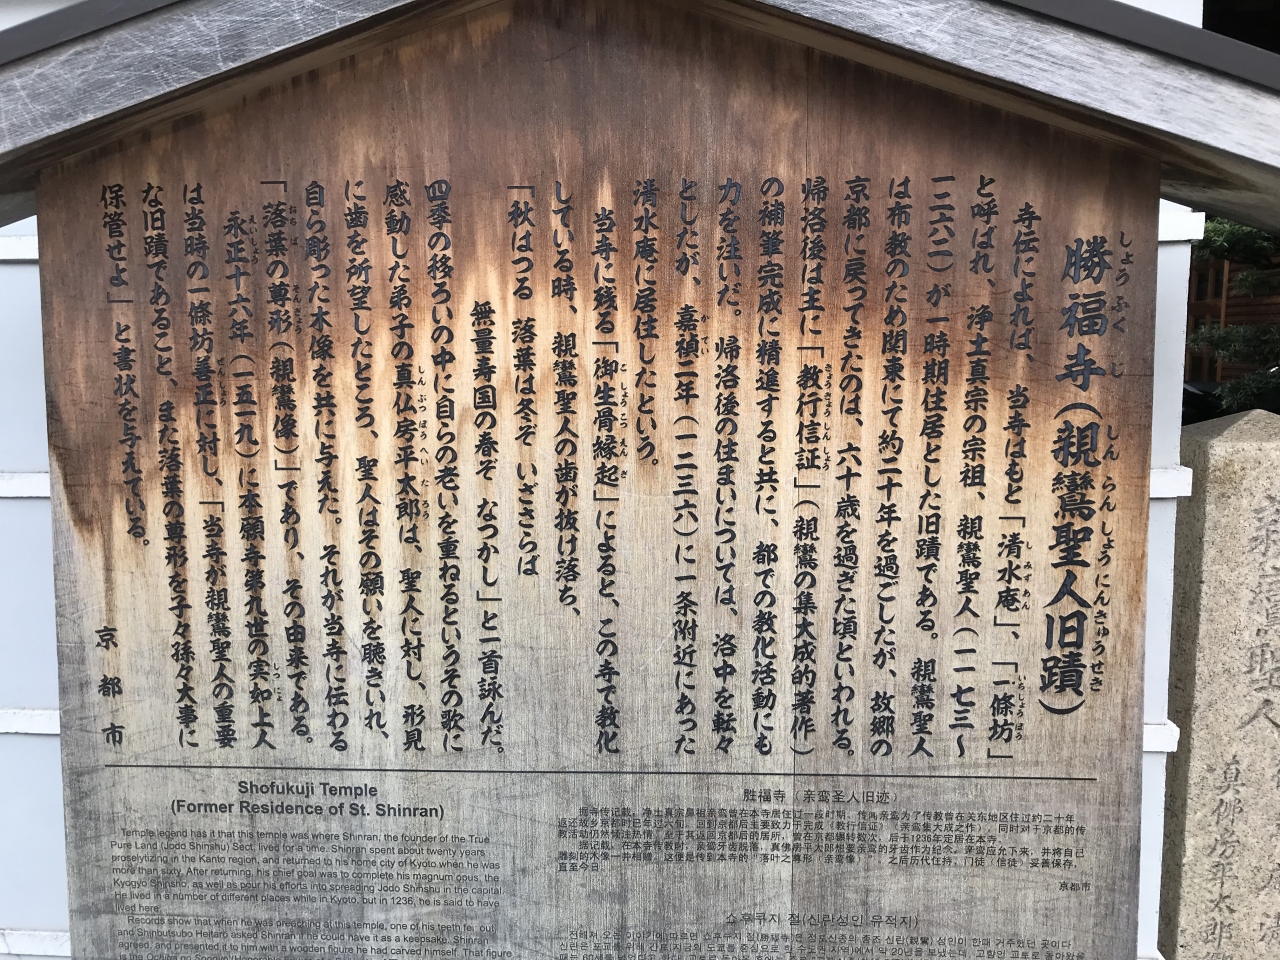 勝福寺(親鸞聖人旧蹟)
しょうふくじ しんらんしょうにんきゅうせき
寺伝によれば、当寺はもと「清水庵」、「一條坊」
しみずあん いちじょうぼう
と呼ばれ、浄土真宗の宗祖、親鸞聖人(一一七三〜
一二六二)が一時期住居とした旧蹟である。親鸞聖人
は布教のため関東にて約二十年を過ごしたが、故郷の
京都に戻ってきたのは、六十歳を過ぎた頃といわれる。
帰洛後は主に「教行信証」(親鸞の集大成的著作)
きょうぎょうしんしょう
の補筆完成に精進すると共に、都での教化活動にも
力を注いだ。帰洛後の住まいについては、洛中を転々
としたが、嘉禎二年(一二三六)に一条附近にあった
かてい
清水庵に居住したという。
当寺に残る「御生骨縁起」によると、この寺で教化
こしょうこつえんぎ
している時、親鸞聖人の歯が抜け落ち、
「秋はつる 落葉は冬ぞ いざさらば
無量寿国の春ぞ なつかし」と一首詠んだ。
四季の移ろいの中に自らの老いを重ねるというその歌に
感動した弟子の真仏房平太郎は、聖人に対し、形見
しんぶつぼうへいたろう
に歯を所望したところ、聖人はその願いを聴きいれ、
自ら彫った木像を共に与えた。それが当寺に伝わる
「落葉の尊形(親鸞像)」であり、その由来である。
おちば そんぎょう
永正十六年(一五一九)に本願寺第九世の実如上人
えいしょう じつにょ
は当時の一條坊善正に対し、「当寺が親鸞聖人の重要
ぜんしょう
な旧蹟であること、また落葉の尊形を子々孫々大事に
保管せよ」と書状を与えている。
京都市
Shofukuji Temple
(Former Residence of St. Shinran)
Temple legend has it that this temple was where Shinran, the founder of the True
Pure Land (Jodo Shinshu) Sect, lived for a time. Shinran spent about twenty years
proselytizing in the Kanto region, and returned to his home city of Kyoto when he was
more than sixty. After returning, his chief goal was to complete his magnum opus, the
Kyogyo Shinsho, as well as pour his efforts into spreading Jodo Shinshu in the capital.
He lived in a number of different places while in Kyoto, but in 1236, he is said to have
lived here.
Records show that when he was preaching at this temple, one of his teeth fell out
and Shinbutsubo Heitaro asked Shinran if he could have it as a keepsake. Shinran
agreed, and presented it to him with a wooden figure he had carved himself. That figure
胜福寺(亲鸾圣人旧迹)
据寺传记载,净土真宗鼻祖亲鸾曾在本寺居住过一段时期。传闻亲鸾为了传教曾在关东地区住过约二十年
返还故乡京都时已年过六旬。回到京都后主要致力于完成《教行信证》(亲鸾集大成之作),同时对于京都的传
教活动仍然倾注热情。至于其返回京都后的居所,曾在京都辗转数次,后于1236年定居在本寺。
据记载,在本寺传教时,亲鸾牙齿脱落,真佛房平太郎想要亲鸾的牙齿作为纪念,亲鸾应允下来,并将自己
雕刻的木像一并相赠。这便是传到本寺的「落叶之尊形(亲鸾像)」。之后历代住持、门徒(信徒)妥善保存,
直至今日。
京都市
쇼후쿠지 절(신란성인 유적지)